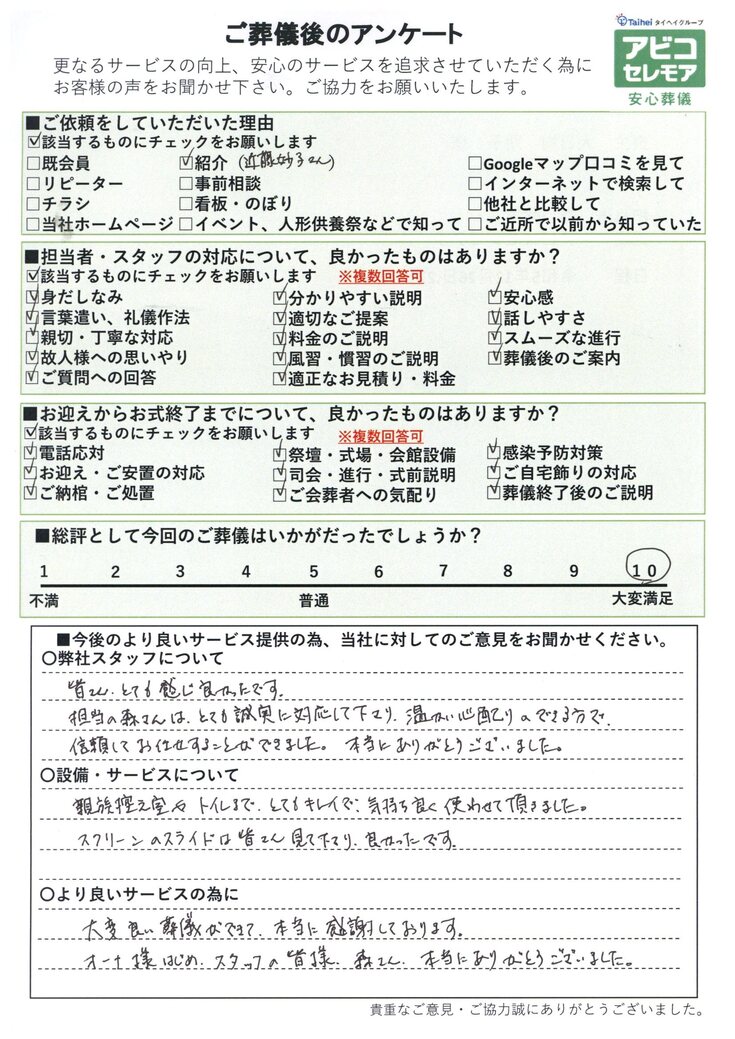 ご葬儀後のアンケート
Taihei タイヘイグループ
アビコ
セレモア
安心葬儀
更なるサービスの向上、安心のサービスを追求させていただく為に
お客様の声をお聞かせ下さい。ご協力をお願いいたします。
■ご依頼をしていただいた理由
☑該当するものにチェックをお願いします
□既会員 ☑紹介（近藤妙子さん） □Googleマップ口コミを見て
□リピーター □事前相談 □インターネットで検索して
□チラシ □看板・のぼり □他社と比較して
□当社ホームページ □イベント、人形供養祭などで知って □ご近所で以前から知っていた
■担当者・スタッフの対応について、良かったものはありますか？
☑該当するものにチェックをお願いします ※複数回答可
☑身だしなみ ☑分かりやすい説明 ☑安心感
☑言葉遣い、礼儀作法 ☑適切なご提案 ☑話しやすさ
☑親切・丁寧な対応 ☑料金のご説明 ☑スムーズな進行
☑故人様への思いやり ☑風習・慣習のご説明 ☑葬儀後のご案内
☑ご質問への回答 ☑適正なお見積り・料金
■お迎えからお式終了までについて、良かったものはありますか？
☑該当するものにチェックをお願いします ※複数回答可
☑電話応対 ☑祭壇・式場・会館設備 ☑感染予防対策
☑お迎え・ご安置の対応 ☑司会・進行・式前説明 ☑ご自宅飾りの対応
☑ご納棺・ご処置 ☑ご会葬者への気配り ☑葬儀終了後のご説明
■総評として今回のご葬儀はいかがだったでしょうか？
1 2 3 4 5 6 7 8 9 10
不満 普通 大変満足
■今後のより良いサービス提供の為、当社に対してのご意見をお聞かせください。
〇弊社スタッフについて
皆さん、とても感じ良かったです。
担当の森さんは、とても誠実に対応して下さり、温かい心配りのできる方で、
信頼してお任せすることができました。本当にありがとうございました。
〇設備・サービスについて
親族控え室やトイレまで、とてもキレイで、気持ち良く使わせて頂きました。
スクリーンのスライドは皆さん見て下さり、良かったです。
〇より良いサービスの為に
大変良い葬儀ができて、本当に感謝しております。
オーナー様はじめ、スタッフの皆様、森さん、本当にありがとうございました。
貴重なご意見・ご協力誠にありがとうございました。